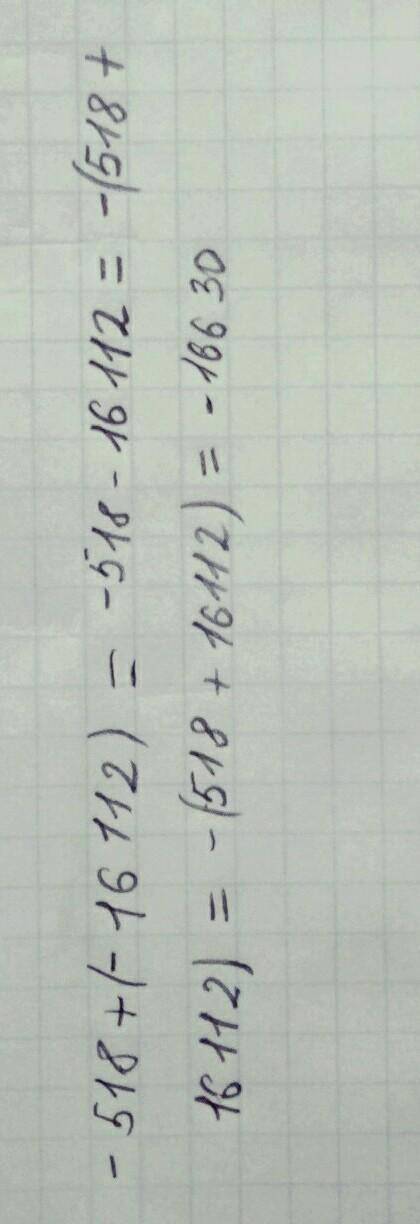 - 518 + (- 16 112) = -518 - 16 112 = -(518 +
16 112) = -(518 + 16112) = -166 30